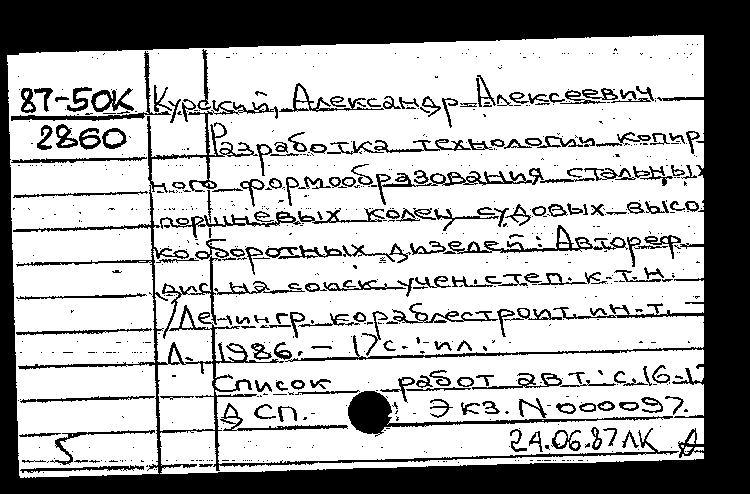 87-50К Курский, Александр Алексеевич.
2860 Разработка технологии копир
ного формообразования стальных
поршневых колец судовых высо
кооборотных дизелей: Автореф.
дис. на соиск. учен. степ. к.т.н.
/Ленингр. кораблестроит. ин-т. –
Л., 1986. – 17с.: ил.
Список работ авт.: с. 16-17
ДСП. Экз. N 000097.
5 24.06.87 ЛК